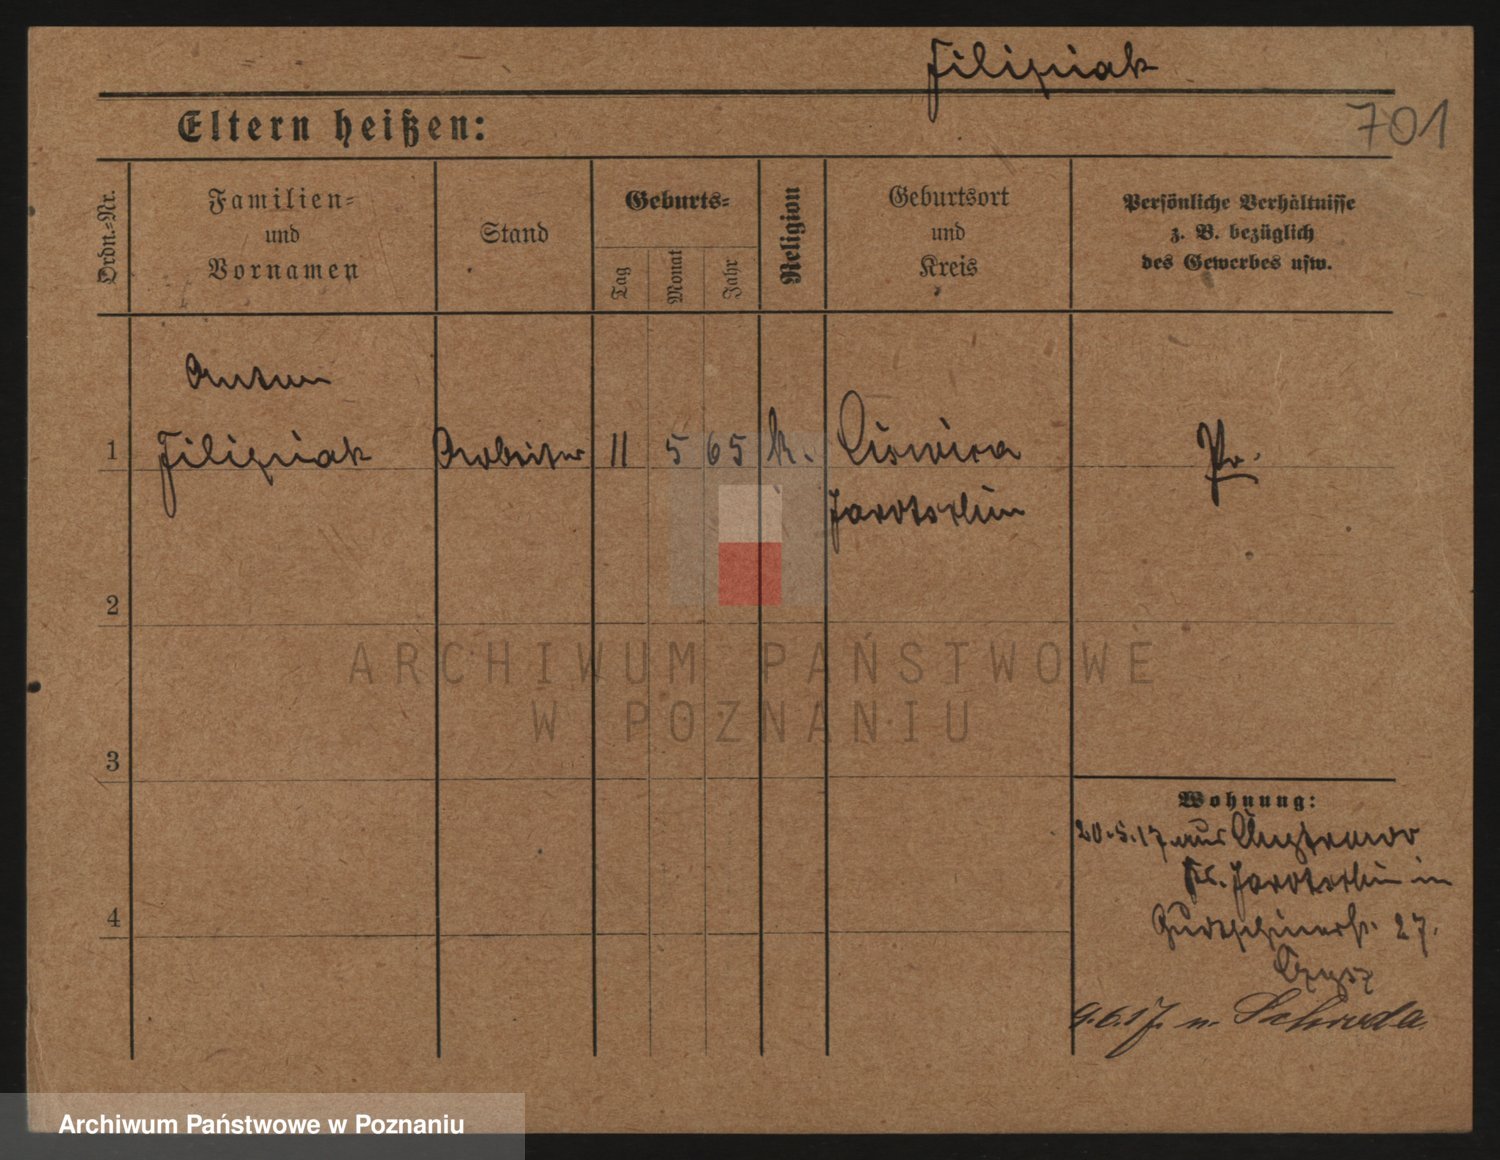 Filipiak
701
Eltern heißen:
Ordn.-Nr.
Familien-
und
Vornamen
Stand
Geburts-
Tag
Monat
Jahr
Religion
Geburtsort
und
Kreis
Persönliche Verhältnisse
z. B. bezüglich
des Gewerbes usw.
Anton
1 Filipiak Arbeiter 11 5 65 k. Ciswica Pr.
Jarotschin
2
ARCHIWUM PAŃSTWOWE
W POZNANIU
3
Wohnung:
20.5.17 aus
Kr. Jarotschin in
4
27.
9.6.17. n. Schroda
Archiwum Państwowe w Poznaniu